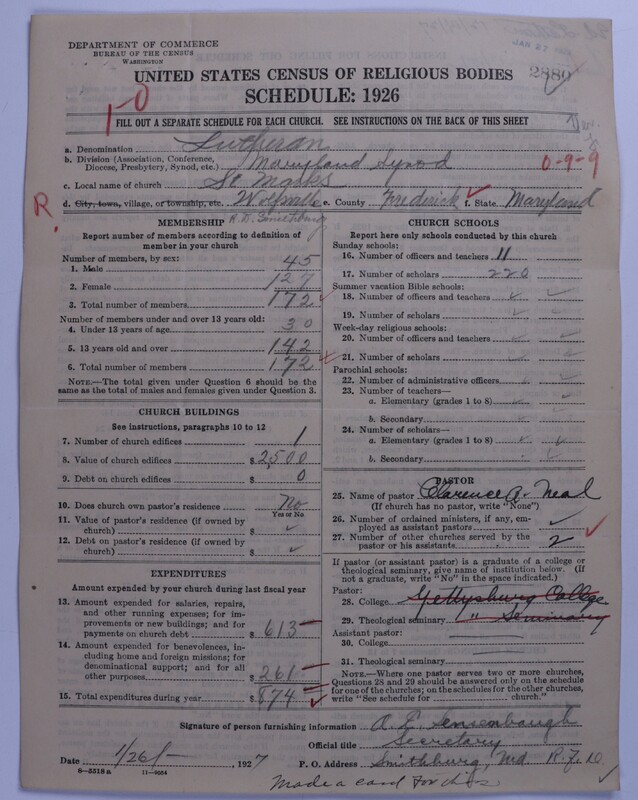 DEPARTMENT OF COMMERCE
BUREAU OF THE CENSUS
WASHINGTON
JAN 27
2880
UNITED STATES CENSUS OF RELIGIOUS BODIES
SCHEDULE: 1926
1-0
FILL OUT A SEPARATE SCHEDULE FOR EACH CHURCH. SEE INSTRUCTIONS ON THE BACK OF THIS SHEET
a. Denomination Lutheran
b. Division (Association, Conference, Diocese, Presbytery, Synod, etc.) Maryland Synod
0-9-9
c. Local name of church St Marks
R.
d. City, town, village, or township, etc. Wolfsville e. County Frederick f. State Maryland
R.D. Smithburg
MEMBERSHIP
Report number of members according to definition of
member in your church
Number of members, by sex:
1. Male 45
2. Female 127
3. Total number of members 172
Number of members under and over 13 years old:
4. Under 13 years of age 30
5. 13 years old and over 142
6. Total number of members 172
NOTE.—The total given under Question 6 should be
same as the total of males and females given under Question 3.
CHURCH BUILDINGS
See instructions, paragraphs 10 to 12
7. Number of church edifices 1
8. Value of church edifices $ 2,500
9. Debt on church edifices $ 0
10. Does church own pastor's residence? No
Yes or No
11. Value of pastor's residence (if owned by
church) $ ✓
12. Debt on pastor's residence (if owned by
church) $ ✓
EXPENDITURES
Amount expended by your church during last fiscal year
13. Amount expended for salaries, repairs,
and other running expenses; for im-
provements or new buildings; and for
payments on church debt $ 613
14. Amount expended for benevolences, in-
cluding home and foreign missions; for
denominational support; and for all
other purposes $ 261
15. Total expenditures during year $ 874
CHURCH SCHOOLS
Report here only schools conducted by this church
Sunday schools:
16. Number of officers and teachers 11
17. Number of scholars 220
Summer vacation Bible schools:
18. Number of officers and teachers
19. Number of scholars
Week-day religious schools:
20. Number of officers and teachers
21. Number of scholars
Parochial schools:
22. Number of administrative officers
23. Number of teachers—
a. Elementary (grades 1 to 8)
b. Secondary
24. Number of scholars—
a. Elementary (grades 1 to 8)
b. Secondary
PASTOR
25. Name of pastor Clarence A. Neal
(If church has no pastor, write "None")
26. Number of ordained ministers, if any, em-
ployed as assistant pastors
27. Number of other churches served by the
pastor or his assistants 2
If pastor (or assistant pastor) is a graduate of a college or
theological seminary, give name of institution below. (If
not a graduate, write "No" in the space indicated.)
Pastor:
28. College Gettysburg College
29. Theological seminary " Seminary
Assistant pastor:
30. College
31. Theological seminary
NOTE.—Where one pastor serves two or more churches,
Questions 28 and 29 should be answered only on the schedule
for one of the churches; on the schedules for the other churches,
write "See schedule for church."
Signature of person furnishing information A. E. Sensenbaugh
Official title Secretary
Date 1/26/- 1927 P. O. Address Smithburg, Md R.F.D.
8-5518a 11-9034
Made a card for this